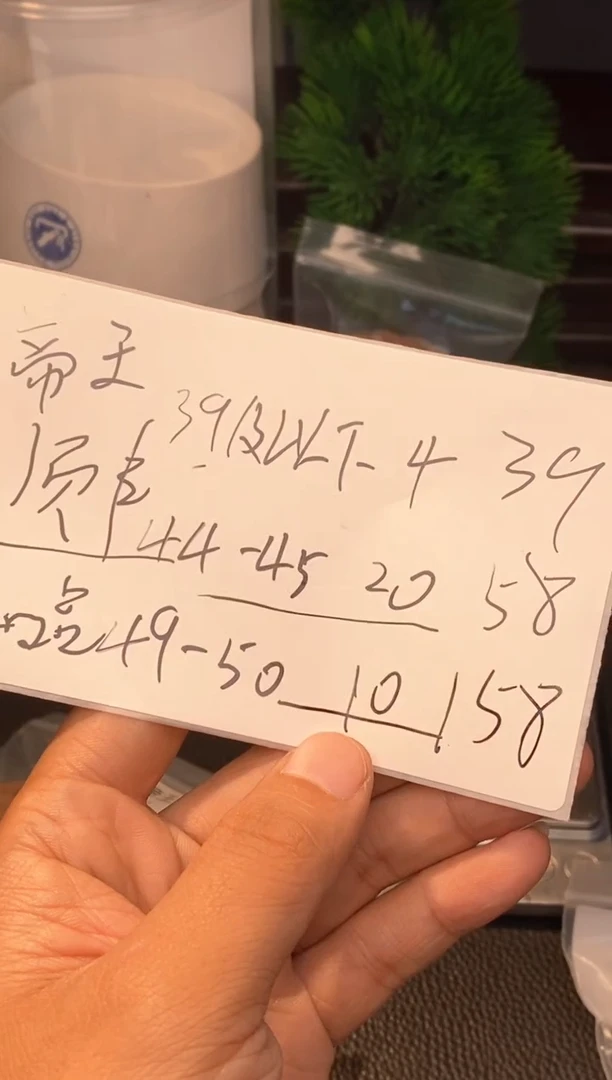 帝王
39及以下-4 39
44-45 20 58
49-50 10 58